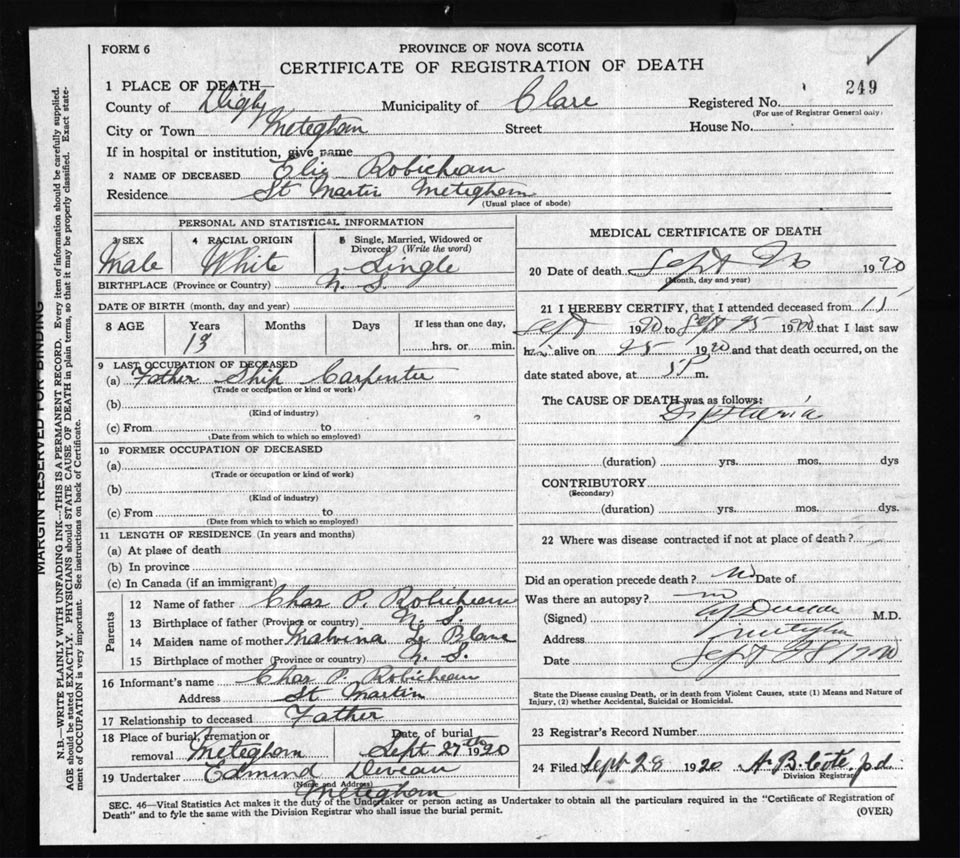 FORM 6
PROVINCE OF NOVA SCOTIA
CERTIFICATE OF REGISTRATION OF DEATH
1 PLACE OF DEATH
County of Digby Municipality of Clare Registered No. 249
(For use of Registrar General only)
City or Town Meteghan Street House No.
If in hospital or institution, give name
2 NAME OF DECEASED Robicheau
Residence St Martin Meteghan
(Usual place of abode)
PERSONAL AND STATISTICAL INFORMATION
3 SEX 4 RACIAL ORIGIN 5 Single, Married, Widowed or Divorced (Write the word)
Male White Single
BIRTHPLACE (Province or Country) N. S.
DATE OF BIRTH (month, day and year)
8 AGE Years Months Days If less than one day,
13 hrs. or min.
9 LAST OCCUPATION OF DECEASED
(a) Father Ship Carpenter
(Trade or occupation or kind or work)
(b)
(Kind of industry)
(c) From to
(Date from which to which so employed)
10 FORMER OCCUPATION OF DECEASED
(a)
(Trade or occupation or kind of work)
(b)
(Kind of industry)
(c) From to
(Date from which to which so employed)
11 LENGTH OF RESIDENCE (In years and months)
(a) At place of death
(b) In province
(c) In Canada (if an immigrant)
Parents
12 Name of father Chas P. Robicheau
13 Birthplace of father (Province or country) N. S.
14 Maiden name of mother Malvina Le Blanc
15 Birthplace of mother (Province or country) N. S.
16 Informant's name Chas P. Robicheau
Address St Martin
17 Relationship to deceased Father
18 Place of burial, cremation or removal Meteghan Date of burial Sept 27th 1920
19 Undertaker Edmund Deveau
(Name and Address)
Meteghan
MEDICAL CERTIFICATE OF DEATH
20 Date of death Sept 1920
(Month, day and year)
21 I HEREBY CERTIFY, that I attended deceased from 15
Sept 1920 to Sept 25 1920 that I last saw
alive on 25 1920 and that death occurred, on the
date stated above, at 5 P m.
The CAUSE OF DEATH was as follows:
(duration) yrs. mos. dys
CONTRIBUTORY
(Secondary)
(duration) yrs. mos. dys.
22 Where was disease contracted if not at place of death?
Did an operation precede death? no Date of
Was there an autopsy? no
(Signed) M.D.
Address Meteghan
Date Sept 28 1920
State the Disease causing Death, or in death from Violent Causes, state (1) Means and Nature of
Injury, (2) whether Accidental, Suicidal or Homicidal.
23 Registrar's Record Number
24 Filed Sept 28 1920 A. B. Cote
Division Registrar
SEC. 46—Vital Statistics Act makes it the duty of the Undertaker or person acting as Undertaker to obtain all the particulars required in the "Certificate of Registration of
Death" and to fyle the same with the Division Registrar who shall issue the burial permit.
(OVER)
MARGIN RESERVED FOR BINDING
N.B.—WRITE PLAINLY WITH UNFADING INK—THIS IS A PERMANENT RECORD. Every item of information should be carefully supplied.
AGE should be stated EXACTLY. PHYSICIANS should STATE CAUSE OF DEATH in plain terms, so that it may be properly classified. Exact state-
ment of OCCUPATION is very important. See instructions on back of Certificate.